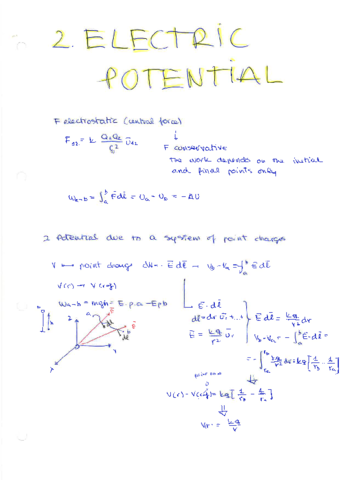 2. ELECTRIC
POTENTIAL
F electrostatic (central force)
F₁₂ = k Q₁Q₂/r² ū₁₂
F conservative
The work depends on the initial
and final points only
Wa→b = ∫ₐᵇ F̄ dl̄ = Ua − Ub = −ΔU
2. Potential due to a system of point charges
V ↔ point charge dV = - Ē dl̄ → Vb − Va = -∫ₐᵇ Ē dl̄
V(r) → V(ref)
Wa→b = mgh = E.p.a − E.p.b
Ē · dl̄
dl̄ = dr ūr + ...
Ē = kq/r² ūr
Ē dl̄ = kq/r² dr
Vb − Va = − ∫ₐᵇ Ē dl̄ =
= − ∫ kq/r² dr = kq [1/rb − 1/ra]
V(r) − V(ref) = kq [1/rb − 1/ra]
Vr = kq/r
a
h
b
z
y
x
a
Ē
dl̄
b
Ē